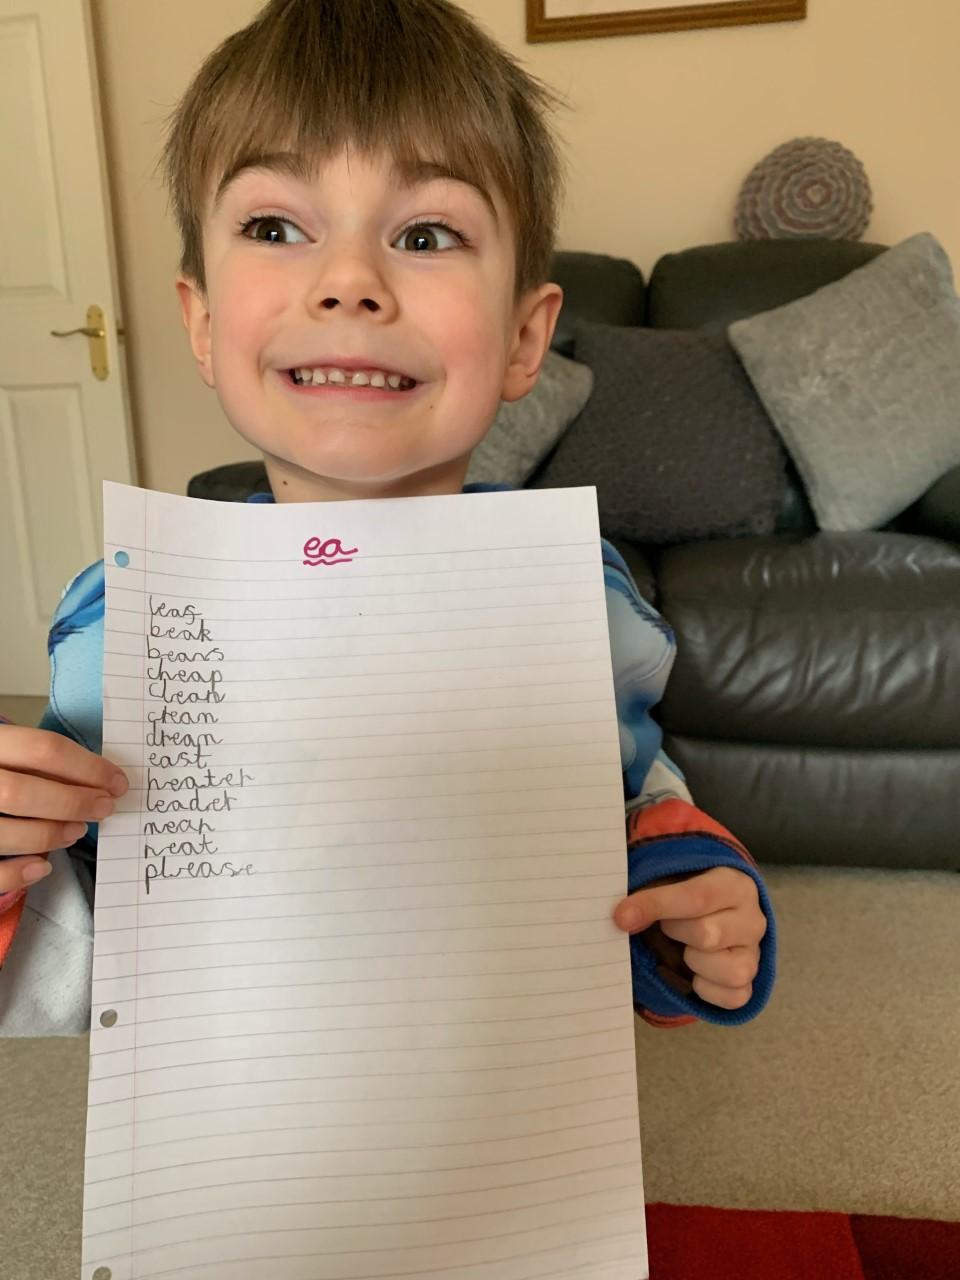 ea
leaf
beak
beans
cheap
clean
cream
dream
east
heater
leader
mean
neat
please